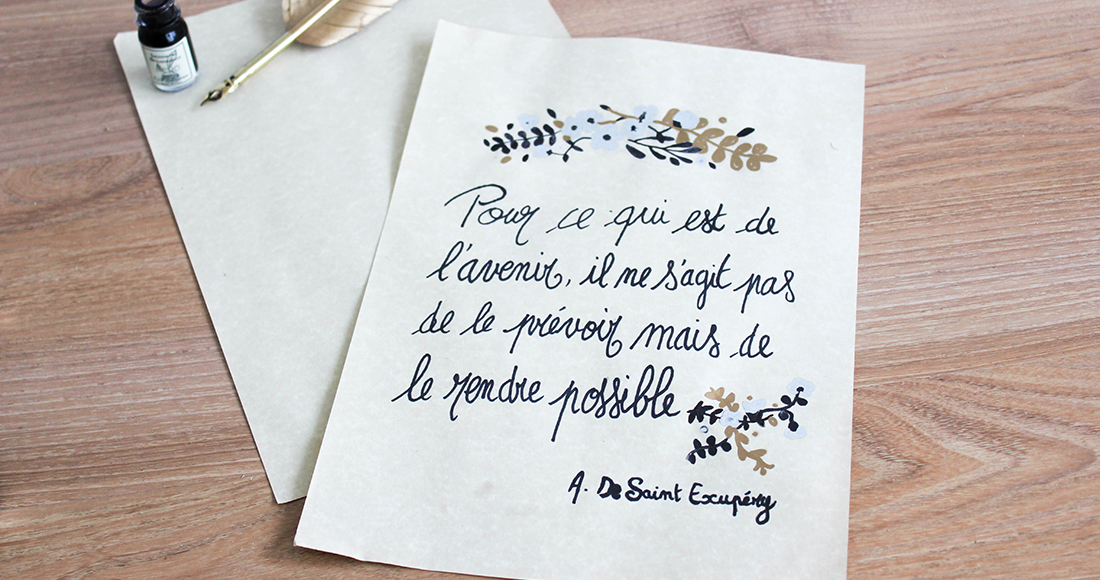 Pour ce qui est de
l'avenir, il ne s'agit pas
de le prévoir mais de
le rendre possible
A. De Saint Exupéry